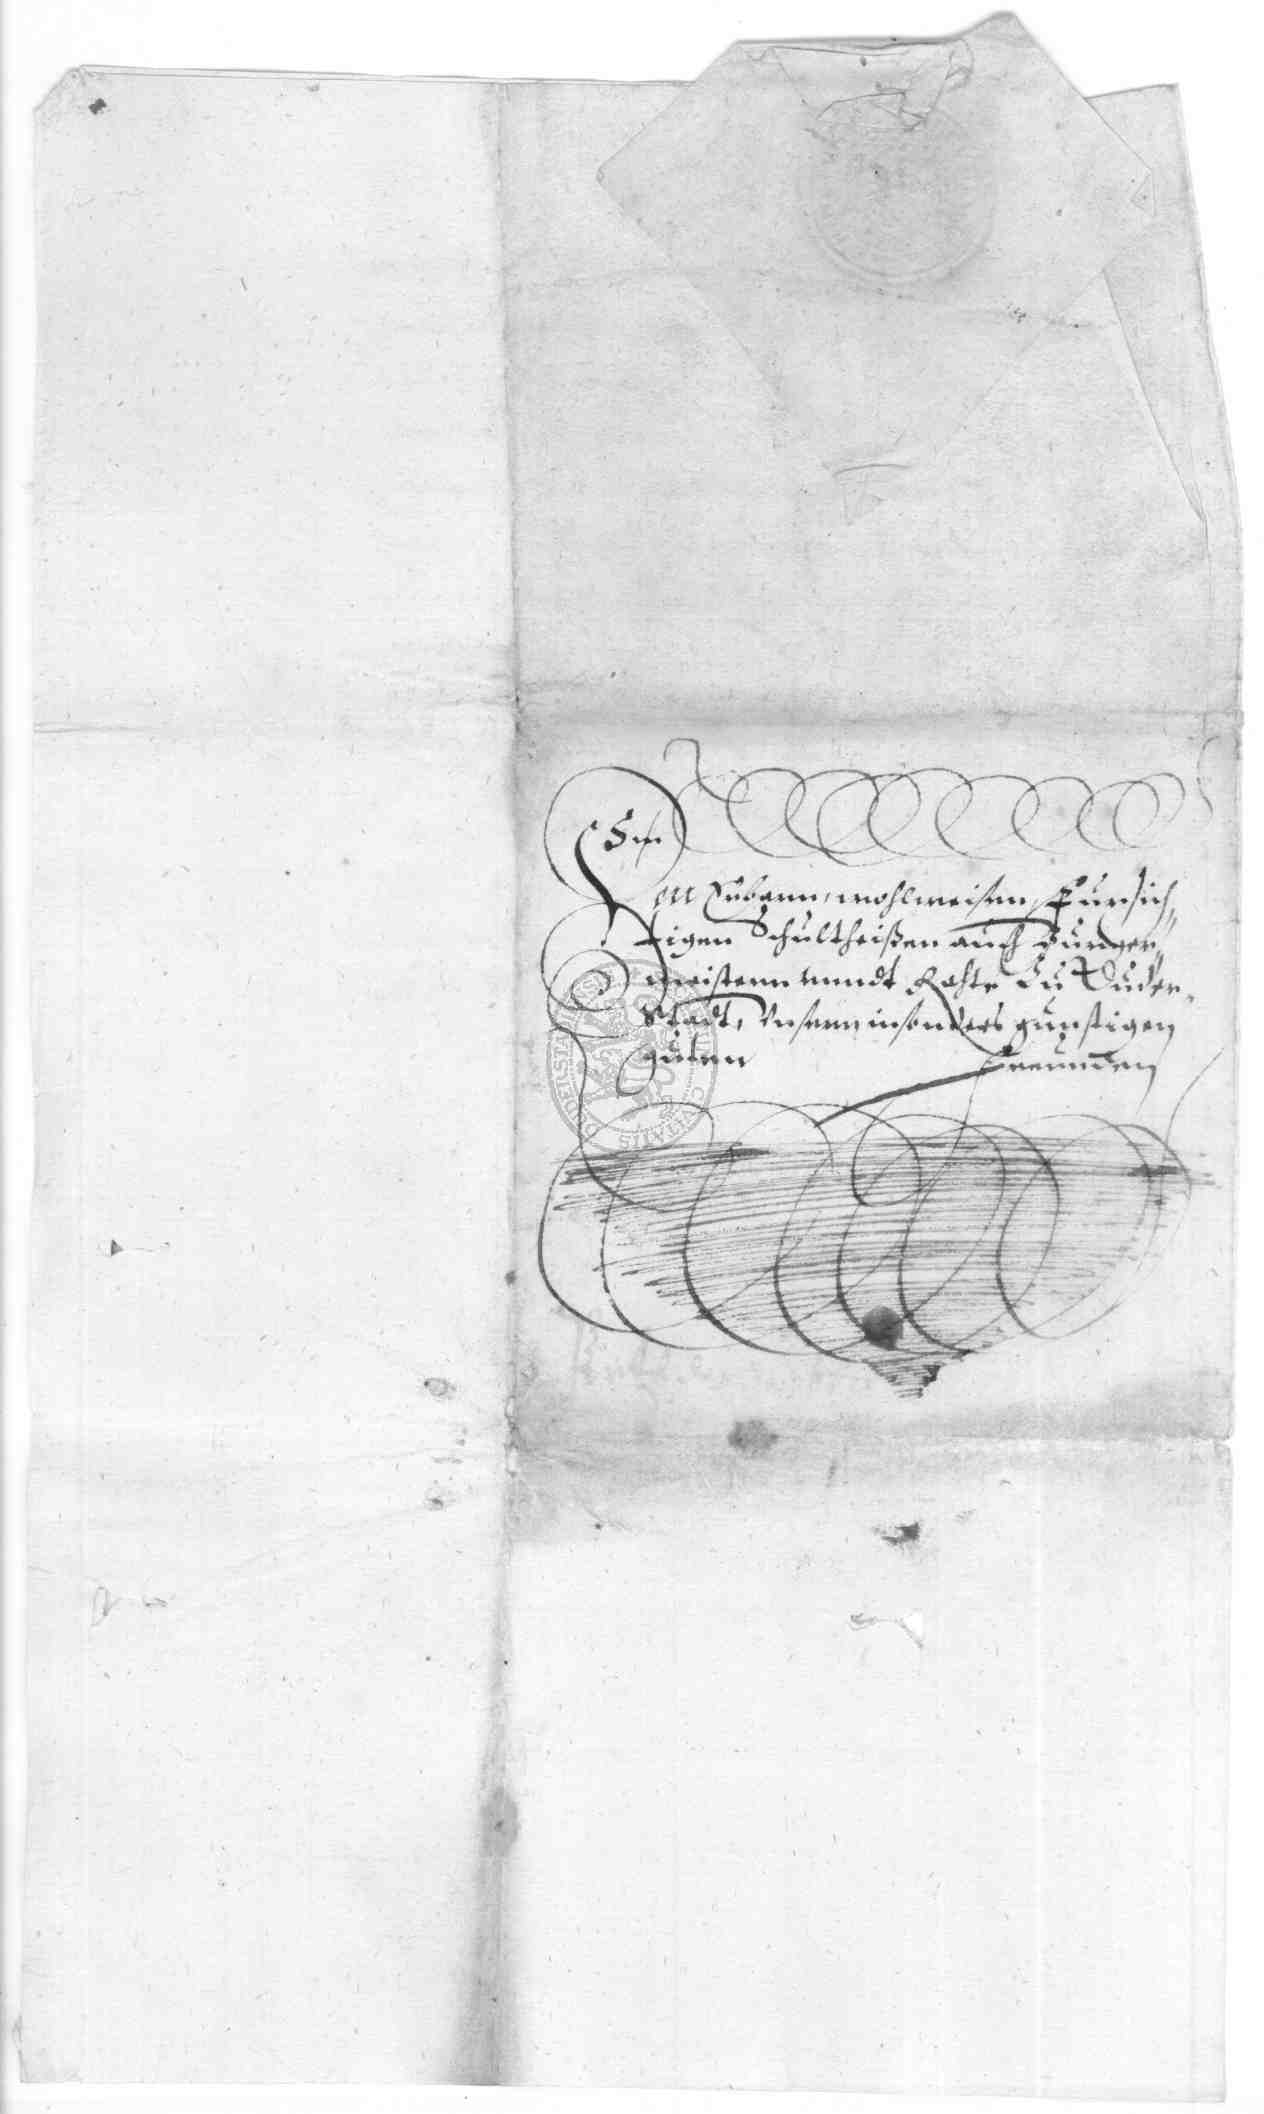 Den Erbarn, wohlweisen, Fursich,
tigen Schultheißen auch Burger,
meistern unndt Rahte Zu Duder-
Stadt, Unsern insonders gunstigen
guten Freunden